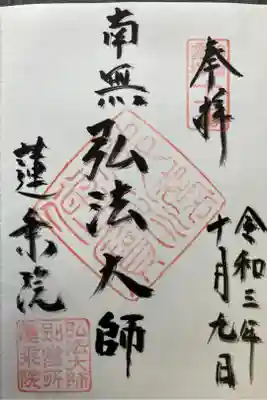 奉拝
令和三年
十月九日
南無弘法大師
蓮乗院
弘法大師
別当所
蓮乗院